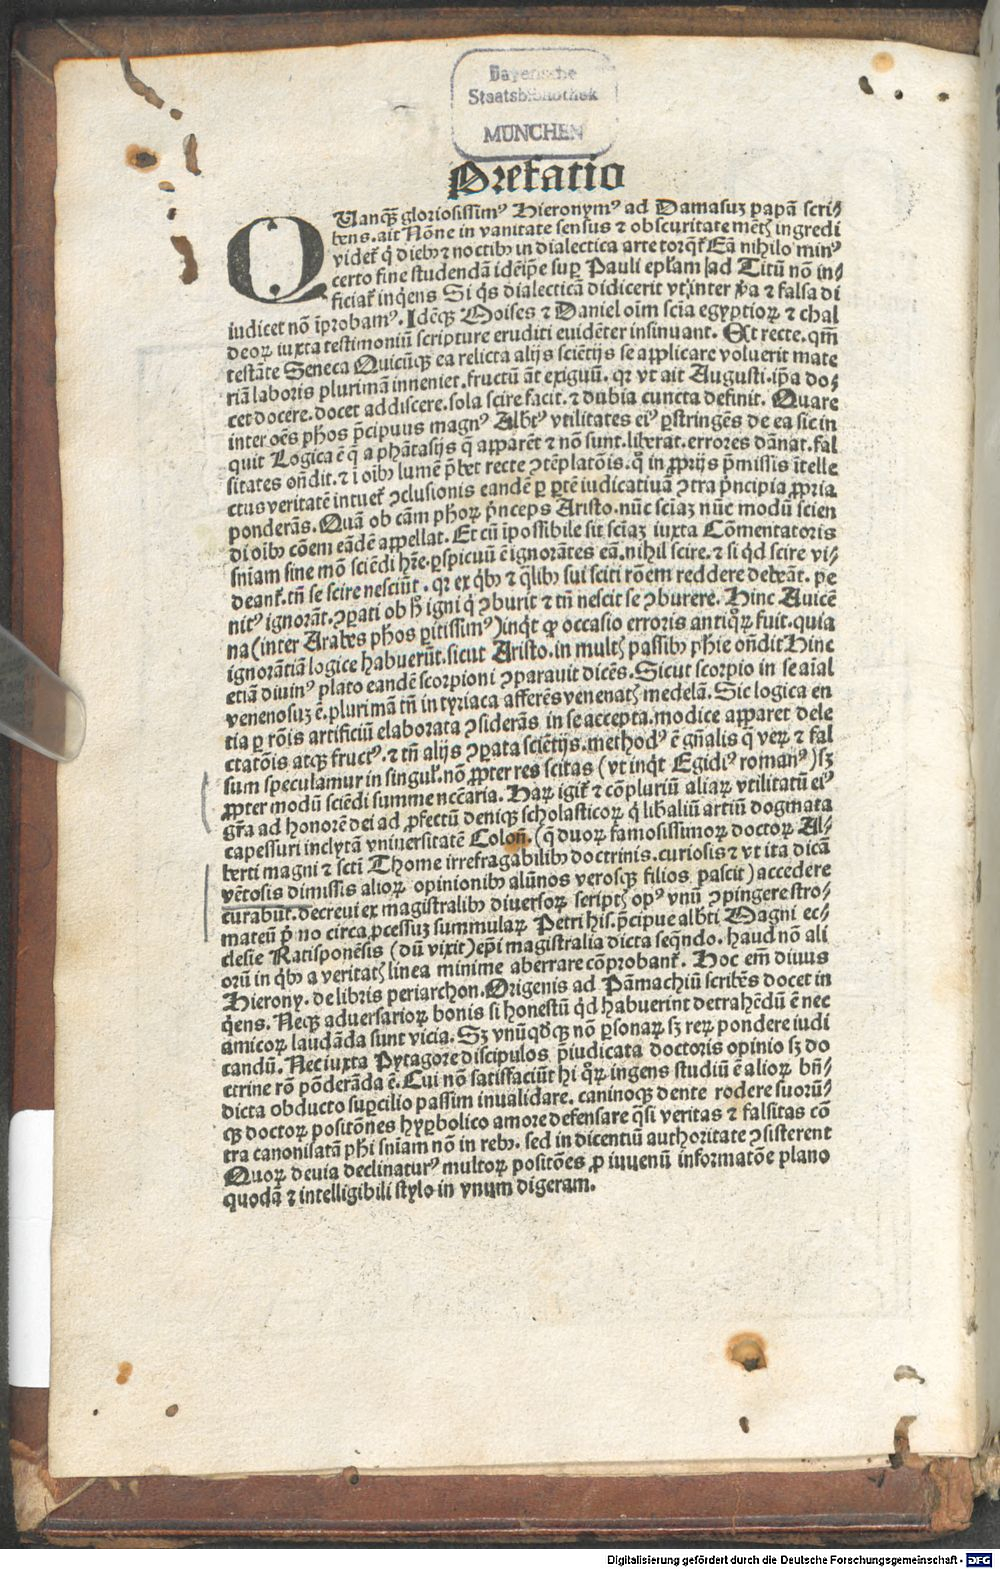 Bayerische
Staatsbibliothek
MÜNCHEN
Prefatio
QUanqȝ gloriosissimꝰ Hieronymꝰ ad Damasuȝ papā scri⸗
bens. ait Nōne in vanitate sensus ⁊ obscuritate mētꝭ ingredi
videt᷑ q̇ diebꝰ ⁊ noctibꝰ in dialectica arte torq̄t᷑ Eā nihilo minꝰ
certo fine studendā idēip̄e suꝑ Pauli ep̄lam ad Titū nō in⸗
ficiat᷑ inq̇ens Si q̇s dialecticā didicerit vt inter v̄a ⁊ falsa di
iudicet nō īprobamꝰ. Idēqȝ Moises ⁊ Daniel oīm scīa egyptioꝝ ⁊ chal
deoꝝ iuxta testimoniū scripture eruditi euidēter insinuant. Et recte. qm̄
testāte Seneca Quicūqȝ ea relicta alijs sciētijs se applicare voluerit mate
riā laboris plurimā inueniet. fructū āt exiguū. qꝛ vt ait Augusti. ip̄a do⸗
cet docere. docet addiscere. sola scire facit. ⁊ dubia cuncta definit. Quare
inter oēs ph̄os p̄cipuus magnꝰ Alb̄tꝰ vtilitates eiꝰ ꝑstringēs de ea sic in
quit Logica ē q̄ a phātasijs q̄ apparēt ⁊ nō sunt. liberat. errores dānat. fal
sitates oñdit. ⁊ ī oībꝰ lumē p̄bet recte ꝯtēplatōis. qͦ in ꝓprijs p̄missis ītelle
ctus veritatē intuet᷑ ꝯclusionis eandē ꝑ ꝑtē iudicatiuā ꝯtra p̄ncipia ꝓpria
ponderās. Quā ob cām ph̄oꝝ p̄nceps Aristo. nūc sciaȝ nūc modū scien
di oībꝰ cōem eādē appellat. Et cū īpossibile sit scīaȝ iuxta Cōmentatoris
sn̄iam sine mō sciēdi hr̄e. ꝑspicuū ē ignorātes eā. nihil scire. ⁊ si q̇d scire vi⸗
deant᷑. tn̄ se scire nesciūt. qꝛ ex q̇bꝰ ⁊ q̄libꝰ sui sciti rōem reddere debeāt. pe
nitꝰ ignorāt. ꝯꝑati ob h̄ igni q̇ ꝯburit ⁊ tn̄ nescit se ꝯburere. Hinc Auicē
na (inter Arabes ph̄os ꝑitissimꝰ) inq̇t ꝙ occasio erroris antiqͦꝝ fuit. quia
ignorātiā logice habuerūt. sicut Aristo. in multꝭ passibꝰ ph̄ie oñdit Hinc
etiā diuinꝰ plato eandē scorpioni ꝯparauit dicēs. Sicut scorpio in se aīal
venenosuȝ ē. plurimā tn̄ in tyriaca afferēs venenatꝭ medelā. Sic logica en
tia ꝑ rōis artificiū elaborata ꝯsiderās in se accepta. modice apparet dele
ctatōis atqȝ fructꝰ. ⁊ tn̄ alijs ꝯꝑata sciētijs. methodꝰ ē gn̄alis q̄ veꝝ ⁊ fal
sum speculamur in singul᷑. nō ꝓpter res scitas (vt inq̇t Egidiꝰ romanꝰ) sȝ
ꝓpter modū sciēdi summe necc̄aria. Haꝝ igit᷑ ⁊ cōpluriū aliaꝝ vtilitatū eiꝰ
gr̄a ad honorē dei ad ꝓfectū deniqȝ scholasticoꝝ q̇ lib̄aliū artiū dogmata
capessuri inclytā vniuersitatē Colon̄. (q̄ duoꝝ famosissimoꝝ doctoꝝ Al⸗
berti magni ⁊ sctī Thome irrefragabilibꝰ doctrinis. curiosis ⁊ vt ita dicā
vētosis dimissis alioꝝ opinionibꝰ alūnos verosqȝ filios pascit) accedere
curabūt. decreui ex magistralibꝰ diuersoꝝ scriptꝭ opꝰ vnū ꝯpingere stro⸗
mateū p̄ no circa ꝓcessuȝ summulaꝝ Petri his. p̄cipue alb̄ti Magni ec⸗
clesie Ratisponēsis (dū vixit) ep̄i magistralia dicta seq̄ndo. haud nō ali
orū in q̇bꝰ a veritatꝭ linea minime aberrare cōprobant᷑. Hoc em̄ diuus
Hierony. de libris periarchon. Origenis ad Pāmachiū scribēs docet in
q̇ens. Neqȝ aduersarioꝝ bonis si honestū q̇d habuerint detrahēdū ē nec
amicoꝝ laudāda sunt vicia. Sȝ vnūqd̄qȝ nō ꝑsonaꝝ sȝ reꝝ pondere iudi
candū. Nec iuxta Pytagore discipulos p̄iudicata doctoris opinio sȝ do
ctrine rō pōderāda ē. Cui nō satisfaciūt hi qͦꝝ ingens studiū ē alioꝝ bn̄⸗
dicta obducto suꝑcilio passim inualidare. caninoqȝ dente rodere suorū⸗
qȝ doctoꝝ positōnes hyꝑbolico amore defensare q̄si veritas ⁊ falsitas cō
tra canonisatā ph̄i sn̄iam nō in rebꝰ. sed in dicentiū authoritate ꝯsisterent
Quoꝝ deuia declinaturꝰ multoꝝ positōes ꝓ iuuenū informatōe plano
quodā ⁊ intelligibili stylo in vnum digeram.
Digitalisierung gefördert durch die Deutsche Forschungsgemeinschaft - DFG